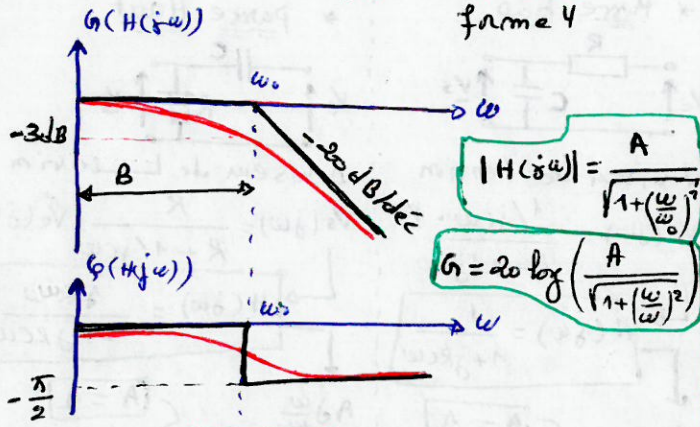 G(H(jω)
forme 4
ω₀
ω
-3dB
B
-20dB/déc
|H(jω)| = A / √(1+(ω/ω₀)²)
G = 20 log (A / √(1+(ω/ω)²))
φ(H(jω)
ω₀
ω
-π/2